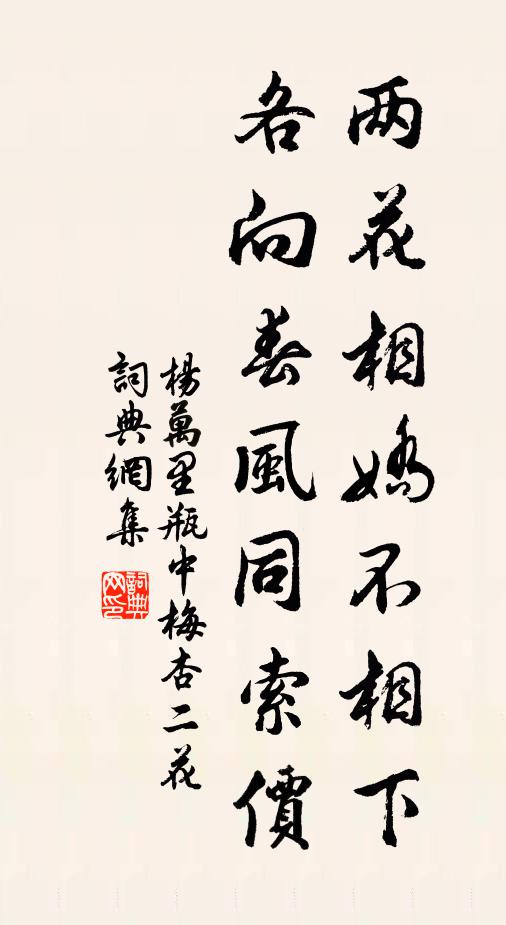 两花相嬌不相下
各向春風同索價
楊萬里瓶中梅杏二花
詞典網集
詞典网印